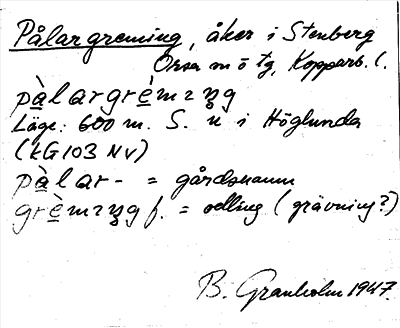 Pålargreming, åker i Stenberg
Orsa m o tg, Kopparb. l.
pàlargrèmıŋg
Läge: 600 m. S. n i Höglunda
(kG103 NV)
pàlar- = gårdsnamn
grèmıŋg f. = odling (grävning?)
B. Granholm 1947.